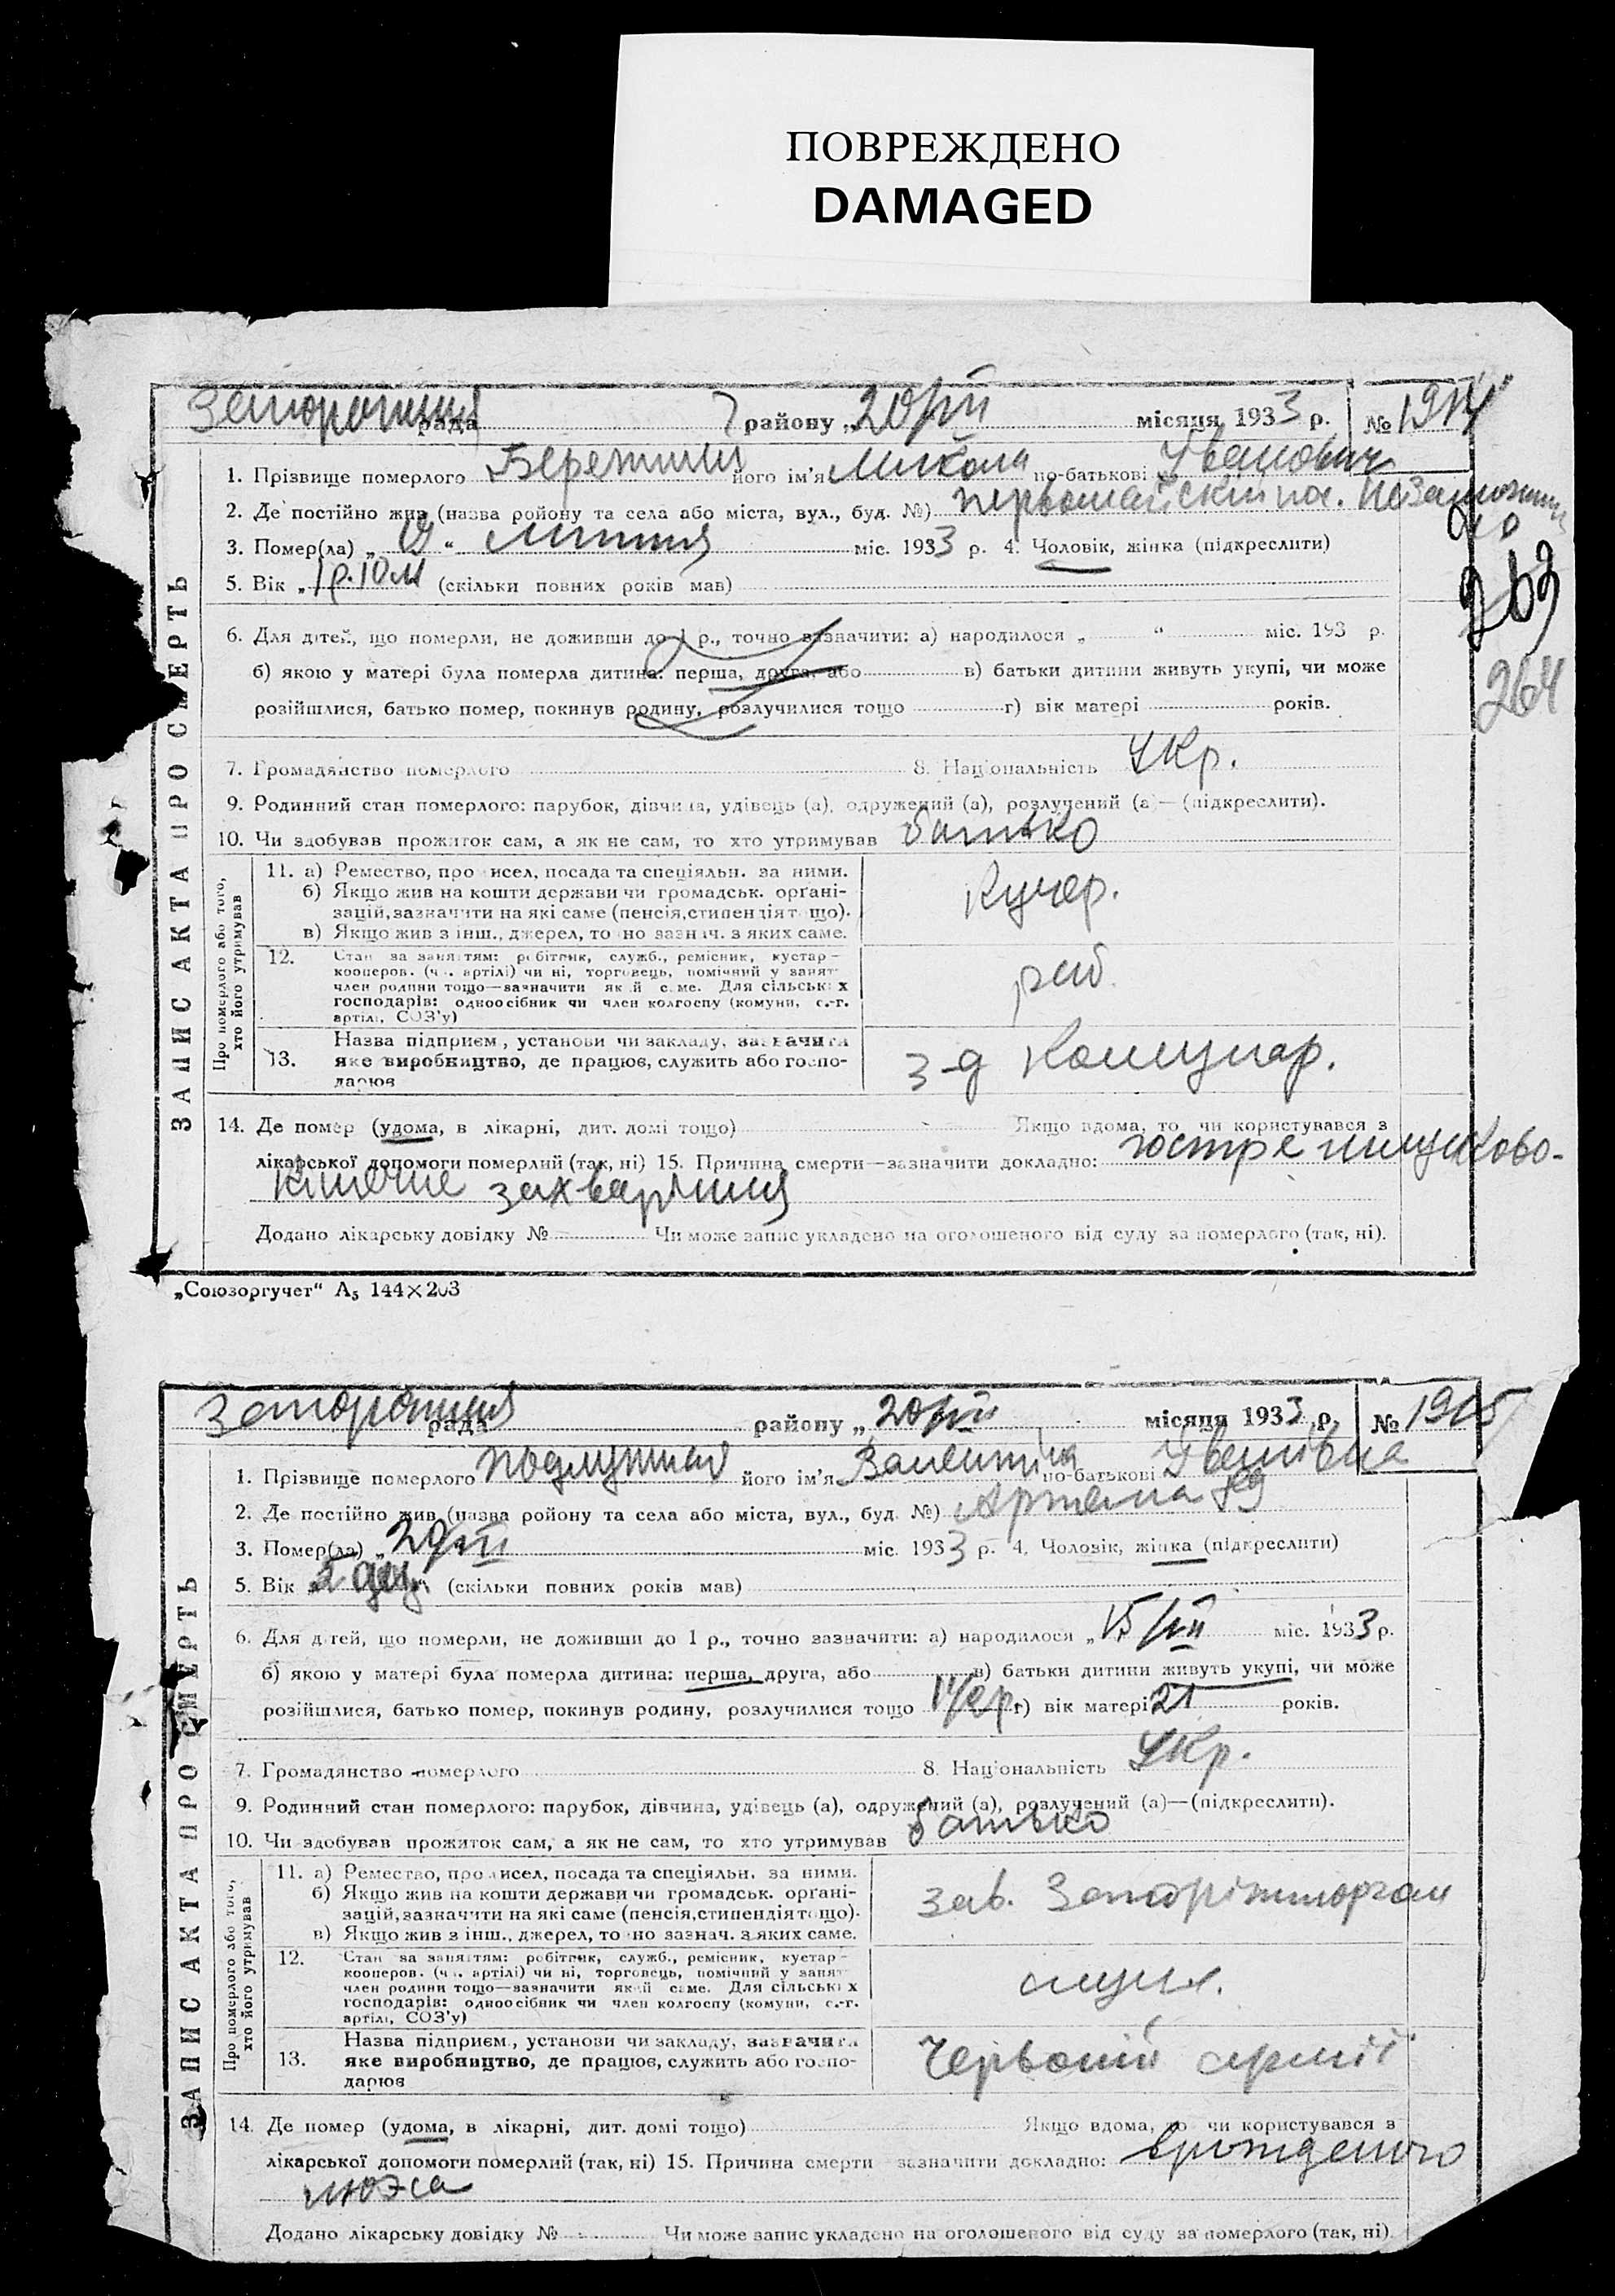 ПОВРЕЖДЕНО
DAMAGED
рада района „20/VII місяця 1933 р. №
1. Прізвище померлого його ім'я Микола по-батькові Іванович
2. Де постійно жив (назва ройону та села або міста, вул., буд. №) первомайский пос.
3. Помер(ла) „ “ липня міс. 1933 р. 4. Чоловік, жінка (підкреслити)
5. Вік „1 р. 10 м (скільки повних років мав)
263
6. Для дітей, що померли, не доживши до 1 р., точно зазначити: а) народилося „ “ міс. 193 р.
б) якою у матері була померла дитина: перша, друга, або в) батьки дитини живуть укупі, чи може
264
розійшлися, батько помер, покинув родину, розлучилися тощо г) вік матері років.
7. Громадянство померлого 8. Національність Укр.
9. Родинний стан померлого: парубок, дівчина, удівець (а), одружений (а), розлучений (а)—(підкреслити).
10. Чи здобував прожиток сам, а як не сам, то хто утримував батько
ЗАПИС АКТА ПРО СМЕРТЬ
Про померлого або того, хто його утримував
11. а) Ремество, промисел, посада та спеціяльн. за ними.
б) Якщо жив на кошти держави чи громадськ. орґані-
зацій, зазначити на які саме (пенсія, стипендія тощо).
в) Якщо жив з інш., джерел, точно зазнач. з яких саме.
Кучер.
12. Стан за заняттям: робітник, служб., ремісник, кустар-
кооперов. (чл. артілі) чи ні, торговець, помічний у занят
член родини тощо—зазначити який саме. Для сільських
господарів: одноосібник чи член колгоспу (комуни, с.-г.
артілі, СОЗ'у)
роб.
13. Назва підприєм., установи чи закладу, зазначити
яке виробництво, де працює, служить або госпо-
дарює
з-д Комунар.
14. Де помер (удома, в лікарні, дит. домі тощо) Якщо вдома, то чи користувався з
лікарської допомоги померлий (так, ні) 15. Причина смерти—зазначити докладно: гостре шлунково-
кишечне захворіння
Додано лікарську довідку № Чи може запис укладено на оголошеного від суду за померлого (так, ні).
„Союзоргучет“ А5 144×203
рада району „20/VII місяця 1933 р. № 1915
1. Прізвище померлого його ім'я Валентина по-батькові Іванівна
2. Де постійно жив (назва ройону та села або міста, вул., буд. №) Артема
3. Помер(ла) „20/VII міс. 1933 р. 4. Чоловік, жінка (підкреслити)
5. Вік „5 ден“ (скільки повних років мав)
6. Для дітей, що померли, не доживши до 1 р., точно зазначити: а) народилося „15/VII міс. 1933 р.
б) якою у матері була померла дитина: перша, друга, або в) батьки дитини живуть укупі, чи може
розійшлися, батько помер, покинув родину, розлучилися тощо г) вік матері 21 років.
7. Громадянство померлого 8. Національність Укр.
9. Родинний стан померлого: парубок, дівчина, удівець (а), одружений (а), розлучений (а)—(підкреслити).
10. Чи здобував прожиток сам, а як не сам, то хто утримував батько
ЗАПИС АКТА ПРО СМЕРТЬ
Про померлого або того, хто його утримував
11. а) Ремество, промисел, посада та спеціяльн. за ними.
б) Якщо жив на кошти держави чи громадськ. орґані-
зацій, зазначити на які саме (пенсія, стипендія тощо).
в) Якщо жив з інш., джерел, точно зазнач. з яких саме.
зав.
12. Стан за заняттям: робітник, служб., ремісник, кустар-
кооперов. (чл. артілі) чи ні, торговець, помічний у занят
член родини тощо—зазначити який саме. Для сільських
господарів: одноосібник чи член колгоспу (комуни, с.-г.
артілі, СОЗ'у)
служ.
13. Назва підприєм., установи чи закладу, зазначити
яке виробництво, де працює, служить або госпо-
дарює
Червоній армії
14. Де помер (удома, в лікарні, дит. домі тощо) Якщо вдома, то чи користувався з
лікарської допомоги померлий (так, ні) 15. Причина смерти зазначити докладно:
люэса
Додано лікарську довідку № Чи може запис укладено на оголошеного від суду за померлого (так, ні)